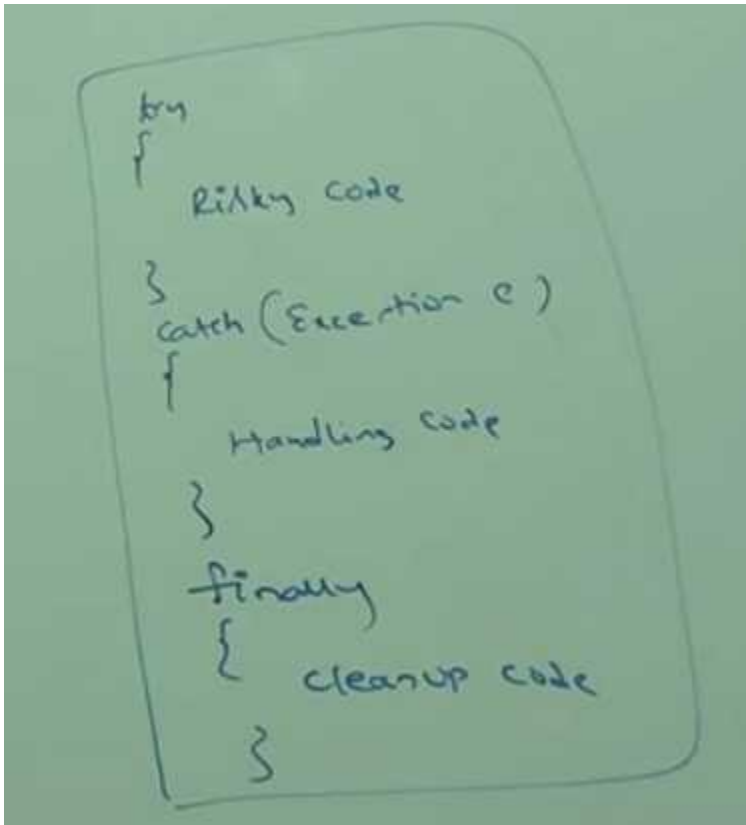 try
{
Risky code
}
catch (Exception e)
{
Handling code
}
finally
{
cleanup code
}